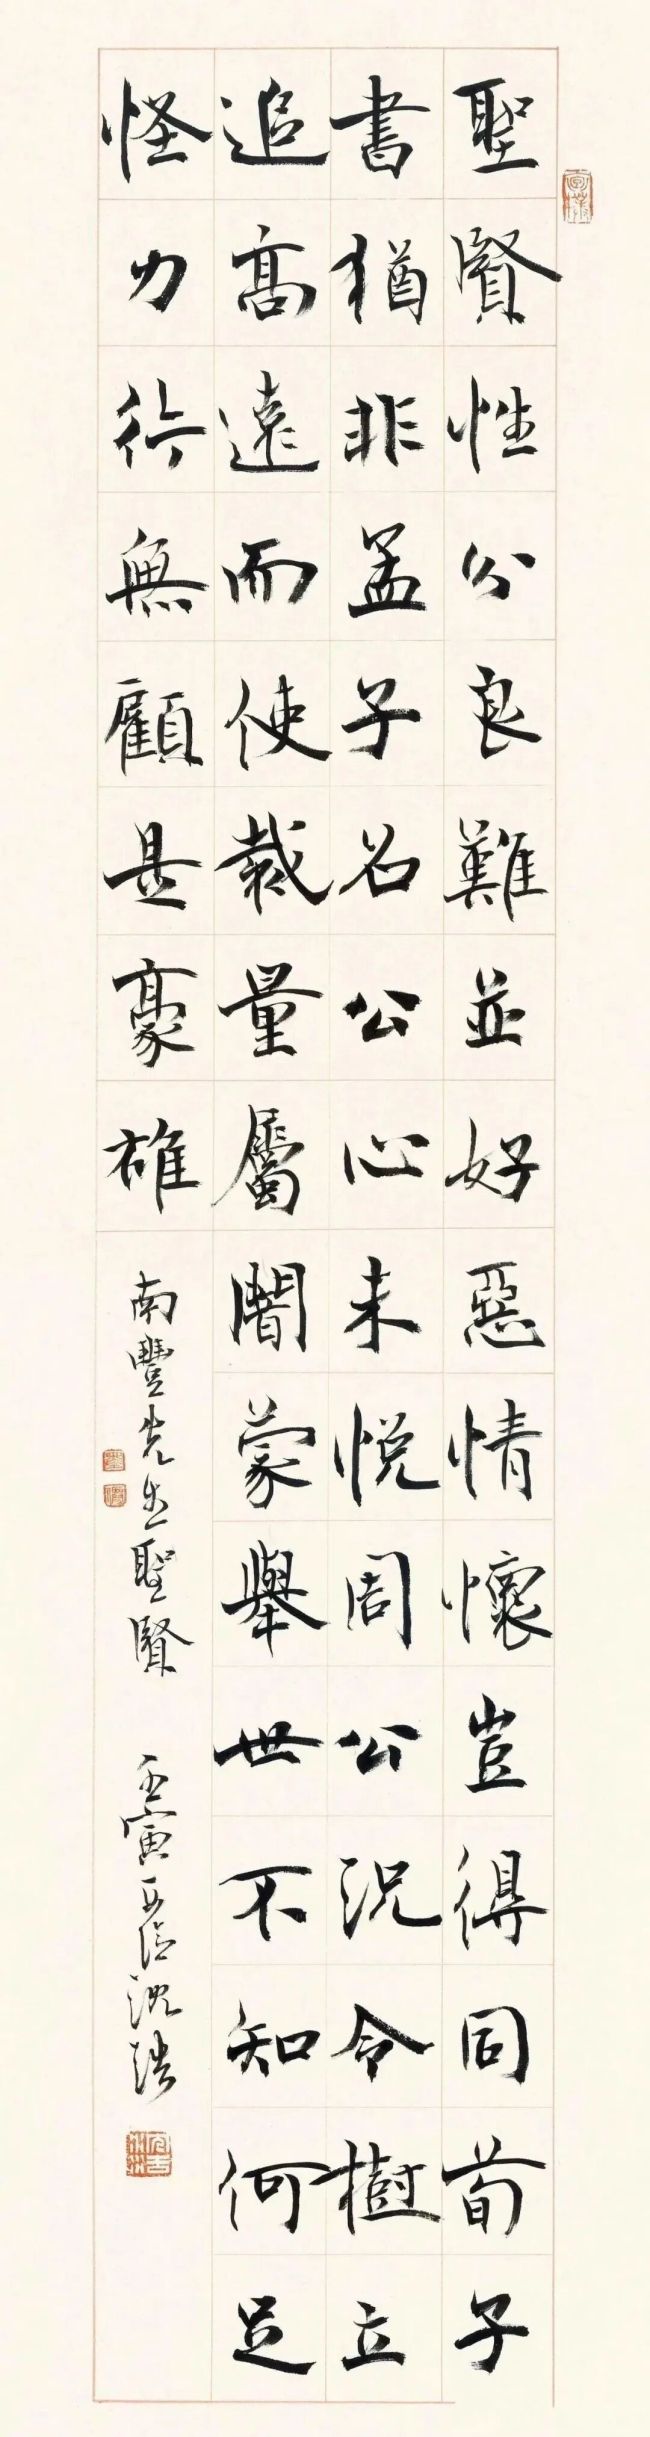 聖賢性分良難並好惡情懷豈得同荀子
書猶非孟子召公心未悅周公況令樹立
追高遠而使裁量屬闇蒙舉世不知何足
怪力行無顧是豪雄
南豐先生聖賢 壬寅沈浩